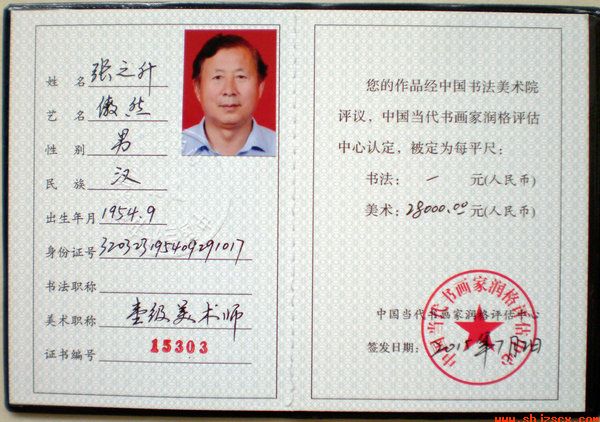 姓 名 张之升
艺 名 傲然
性 别 男
民 族 汉
出生年月 1954.9
身份证号 320323195409291017
书法职称
美术职称 壹级美术师
证书编号 15303
您的作品经中国书法美术院
评议，中国当代书画家润格评估
中心认定，被定为每平尺：
书法： 一 元(人民币)
美术：28000.00元(人民币)
中国当代书画家润格评估中心
签发日期： 2015年7月7日
中国当代书画家润格评估中心
www.shjzscx.com